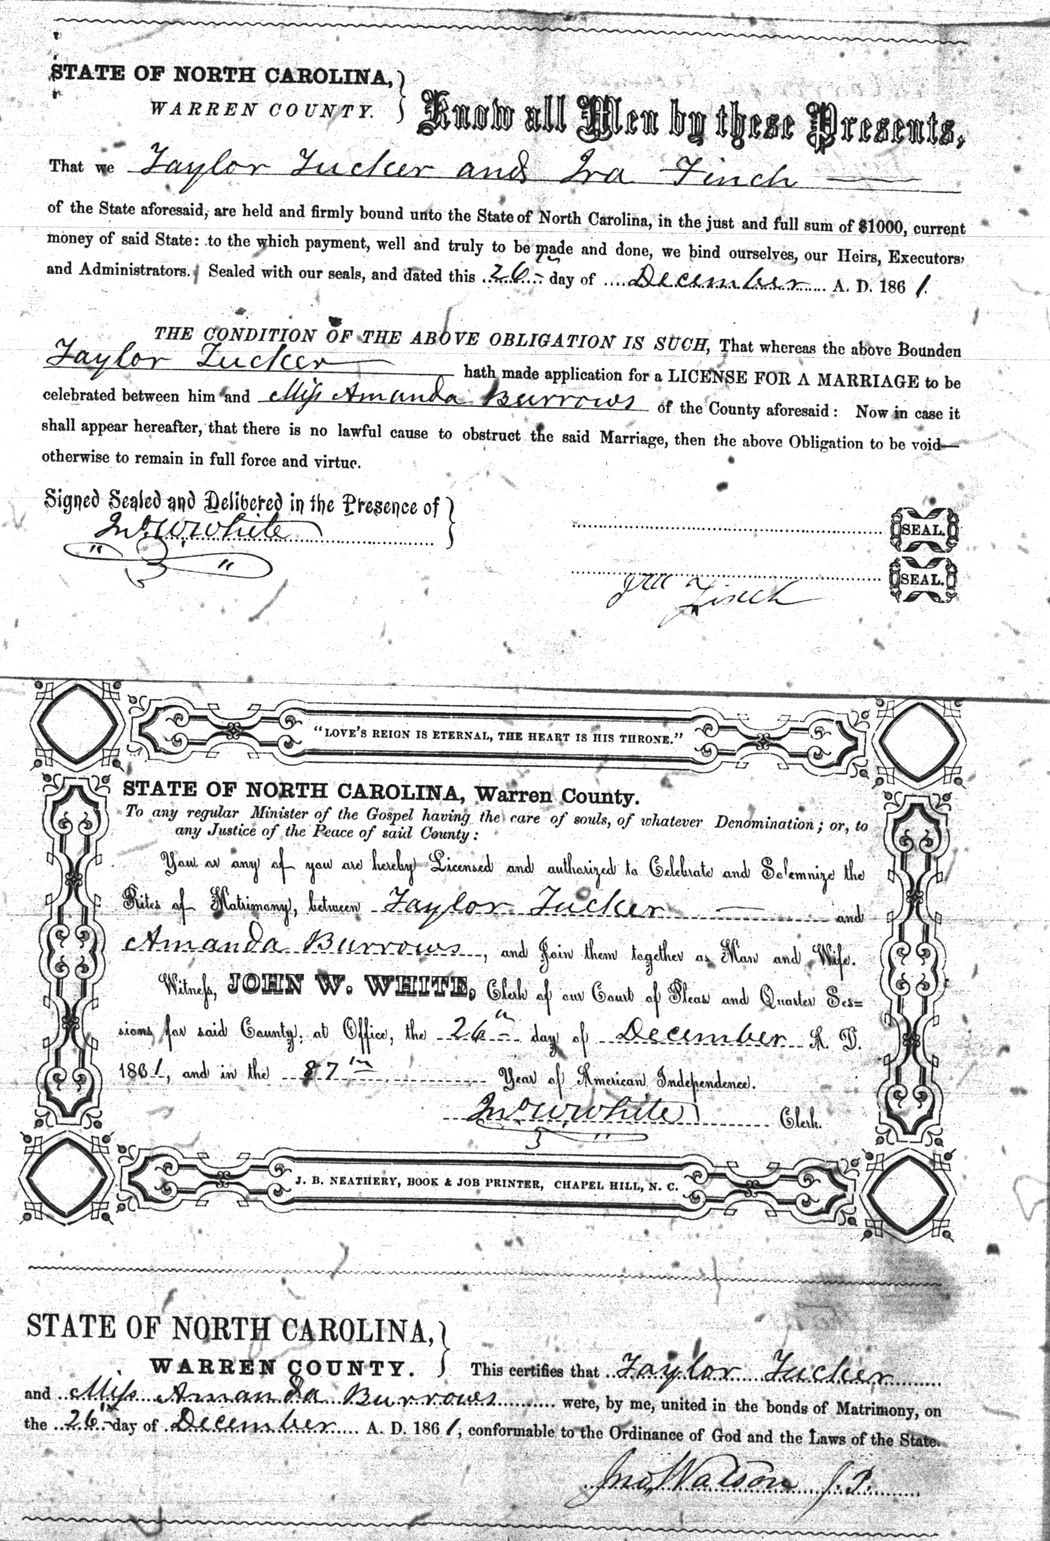 STATE OF NORTH CAROLINA,
WARREN COUNTY.
Know all Men by these Presents,
That we Taylor Tucker and Ira Finch
of the State aforesaid, are held and firmly bound unto the State of North Carolina, in the just and full sum of $1000, current
money of said State: to the which payment, well and truly to be made and done, we bind ourselves, our Heirs, Executors,
and Administrators. Sealed with our seals, and dated this 26th day of December A. D. 1861.
THE CONDITION OF THE ABOVE OBLIGATION IS SUCH, That whereas the above Bounden
Taylor Tucker hath made application for a LICENSE FOR A MARRIAGE to be
celebrated between him and Miss Amanda Burrows of the County aforesaid: Now in case it
shall appear hereafter, that there is no lawful cause to obstruct the said Marriage, then the above Obligation to be void—
otherwise to remain in full force and virtue.
Signed Sealed and Delibered in the Presence of
Jno W White
SEAL.
SEAL.
Ira Finch
"LOVE'S REIGN IS ETERNAL, THE HEART IS HIS THRONE."
STATE OF NORTH CAROLINA, Warren County.
To any regular Minister of the Gospel having the care of souls, of whatever Denomination; or, to
any Justice of the Peace of said County:
You or any of you are hereby Licensed and authorized to Celebrate and Solemnize the
Rites of Matrimony, between Taylor Tucker and
Amanda Burrows, and Join them together as Man and Wife.
Witness, JOHN W. WHITE, Clerk of our Court of Pleas and Quarter Ses=
sions for said County, at Office, the 26th day of December A. D.
1861, and in the 87th Year of American Independence.
Jno W White Clerk.
J. B. NEATHERY, BOOK & JOB PRINTER, CHAPEL HILL, N. C.
STATE OF NORTH CAROLINA,
WARREN COUNTY.
This certifies that Taylor Tucker
and Miss Amanda Burrows were, by me, united in the bonds of Matrimony, on
the 26th day of December A. D. 1861, conformable to the Ordinance of God and the Laws of the State.
Jno Watson J.P.